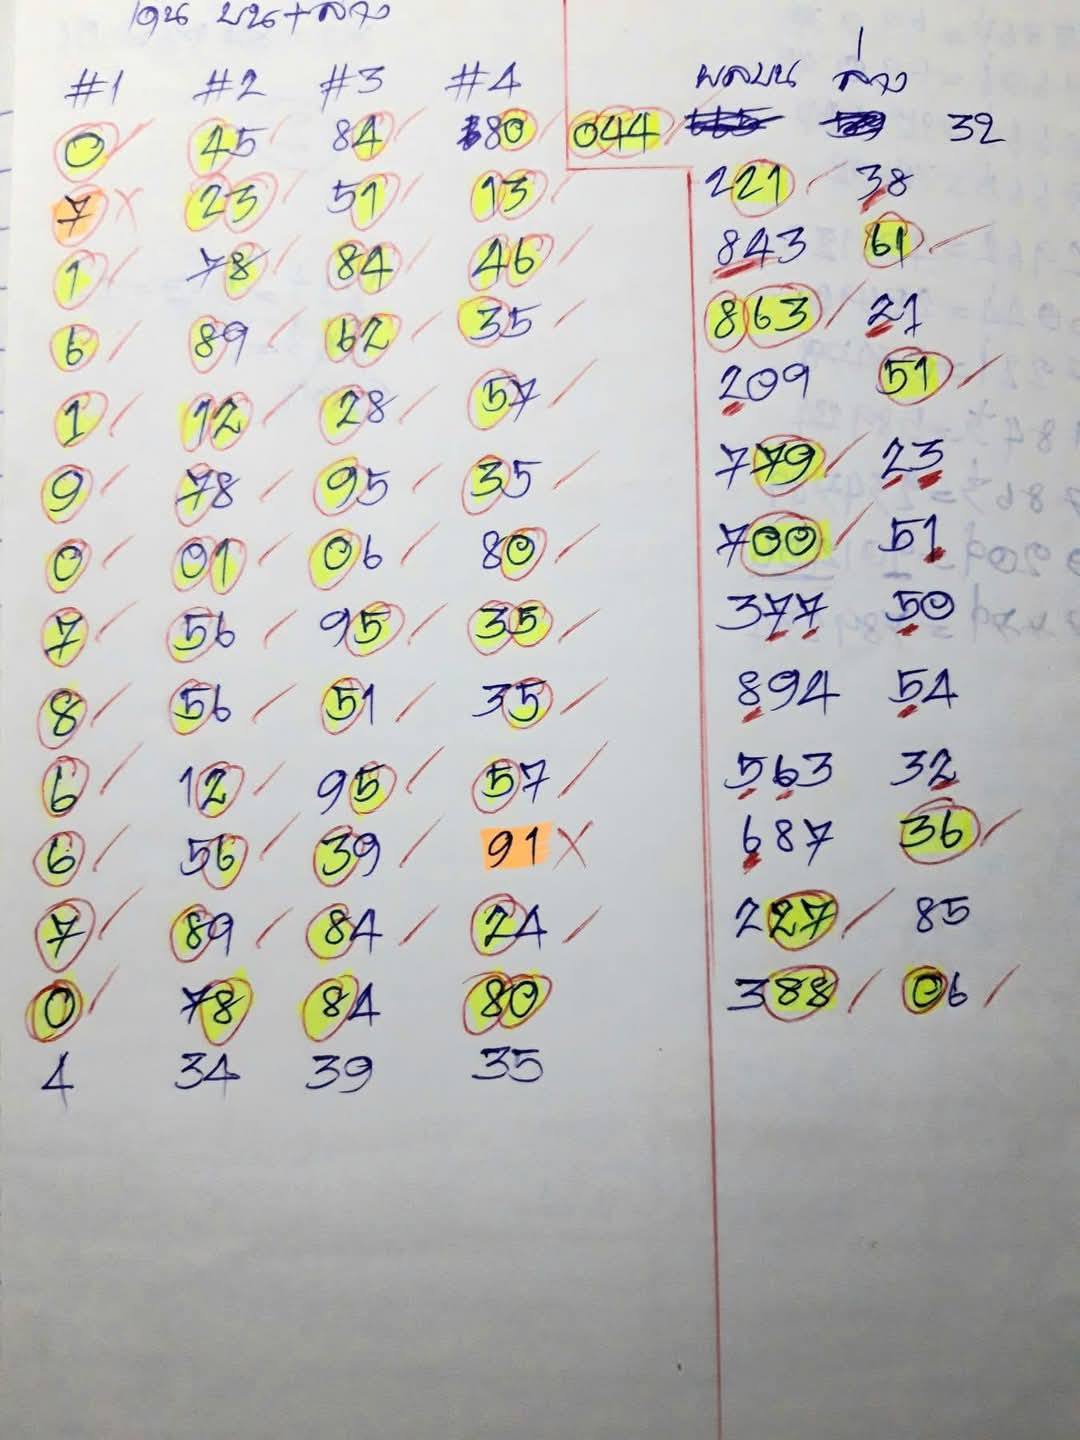 เจน บน+ล่าง
#1 #2 #3 #4 ผลบน ล่าง
0 45 84 80 044 32
7 23 51 13 221 38
1 78 84 46 843 61
6 89 62 35 863 21
1 12 28 57 209 51
9 78 95 35 779 23
0 01 06 80 700 51
7 56 95 35 377 50
8 56 51 35 894 54
6 12 95 57 563 32
6 56 39 91 687 36
7 89 84 24 227 85
0 78 84 80 388 06
4 34 39 35